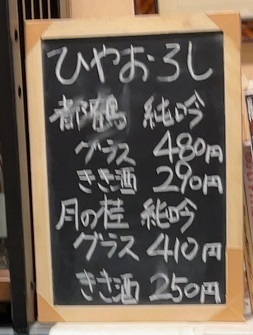 ひやおろし
都鶴 純吟
グラス 480円
きき酒 290円
月の桂 純吟
グラス 410円
きき酒 250円